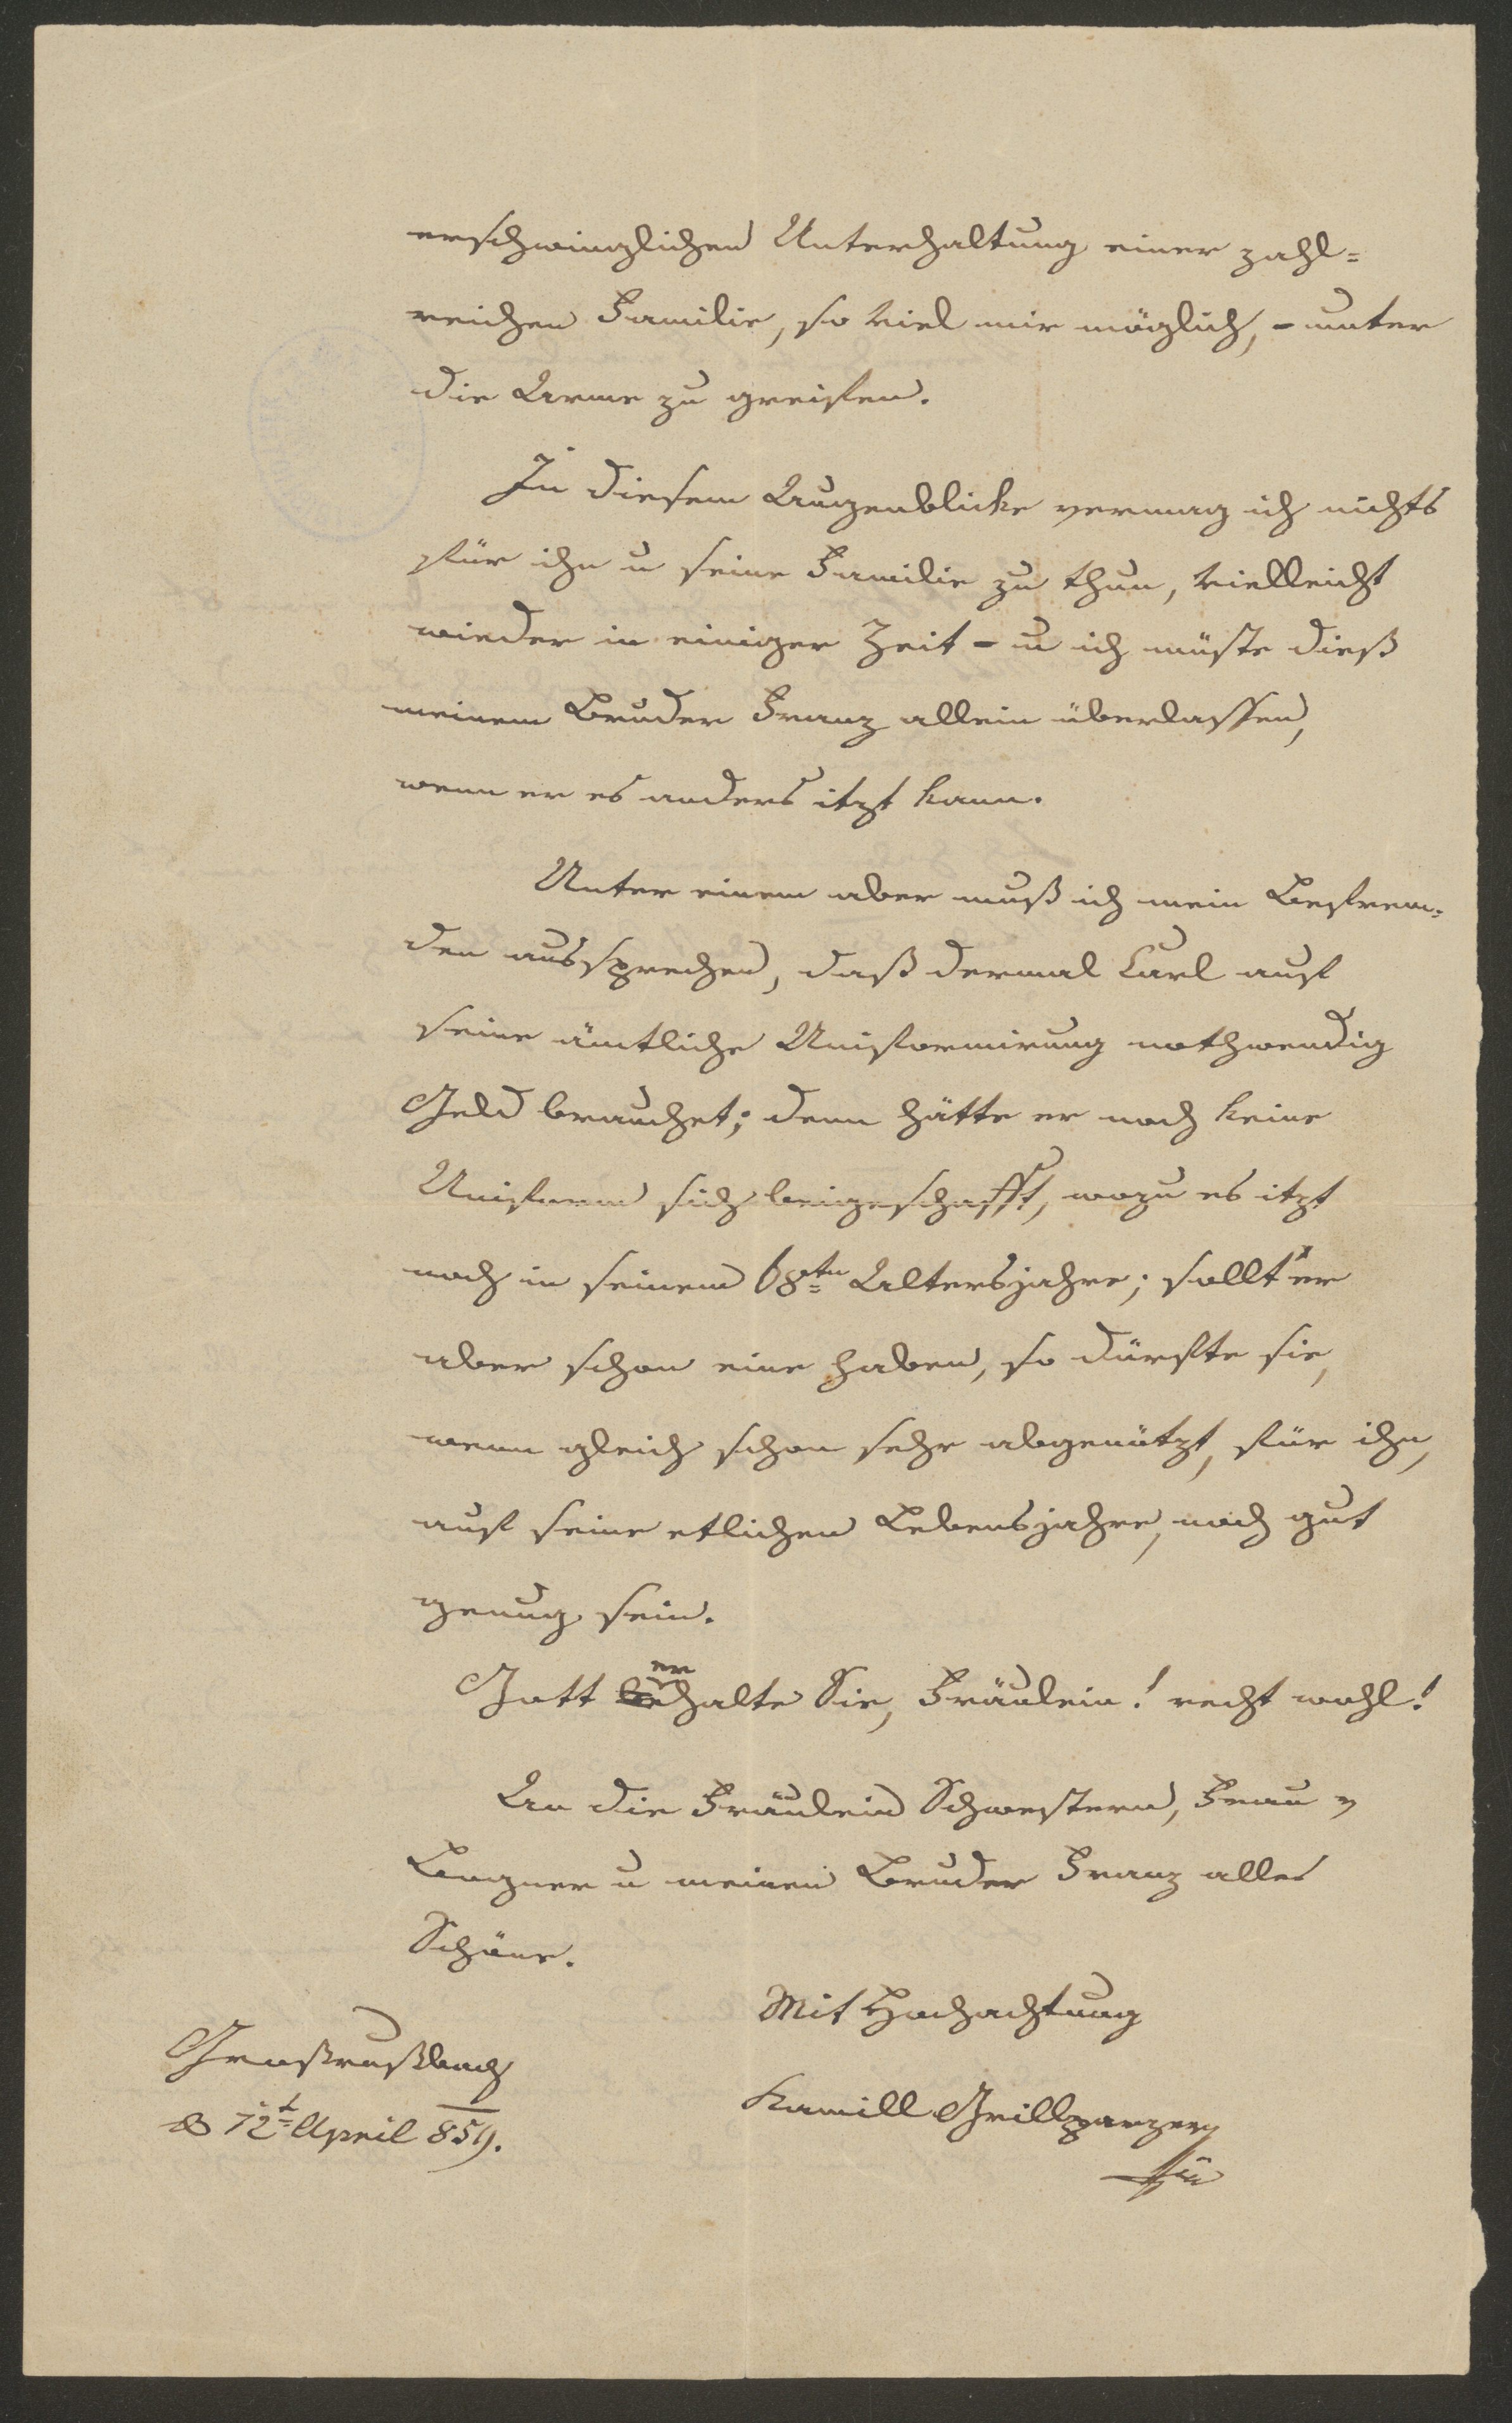 erschwinglichen Unterhaltung einer zahl=
reichen Familie, so viel mir möglich, - unter
die Arme zu greifen.
In diesem Augenblicke vermag ich nichts
für ihn u seine Familie zu thun, vielleicht
wieder in einiger Zeit - u ich müßte dieß
meinem Bruder Franz allein überlassen,
wenn er es anders itzt kann.
Unter einem aber muß ich mein Befrem=
den aussprechen, daß dermal Carl auf
seine ämtliche Uniformirung nothwendig
Geld brauchet; denn hätte er noch keine
Uniform sich beigeschafft, wozu es itzt
noch in seinem 68tn Altersjahre; sollt er
aber schon eine haben, so dürfte sie,
wenn gleich schon sehr abgenützt, für ihn,
auf seine etlichen Lebensjahre, noch gut
genug sein.
Gott erhalte Sie, Fräulein! recht wohl!
An die Fräulein Schwestern, Frau
u meinen Bruder Franz alles
Schöne.
Mit Hochachtung
Großrußbach
12t April 859.
Kamill Grillparzer